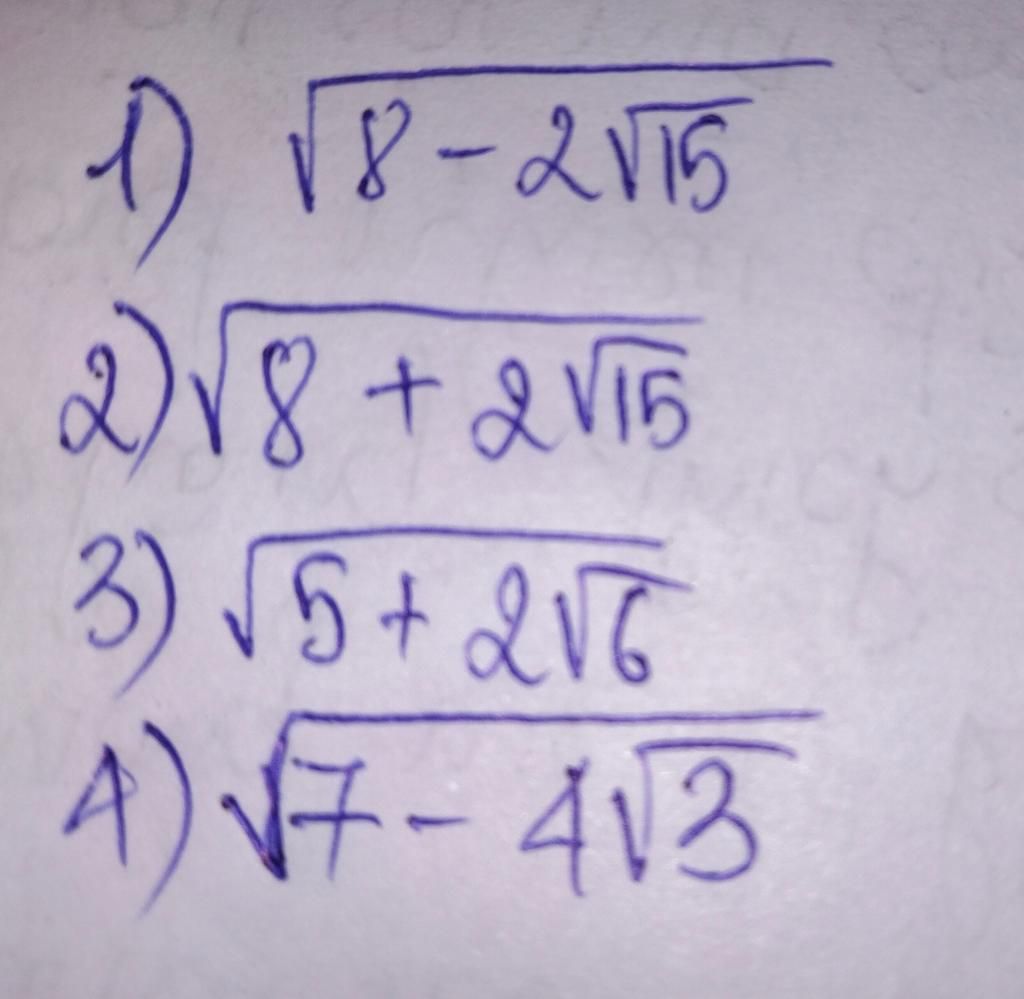 1) √(8 - 2√15)
2) √(8 + 2√15)
3) √(5 + 2√6)
4) √(7 - 4√3)